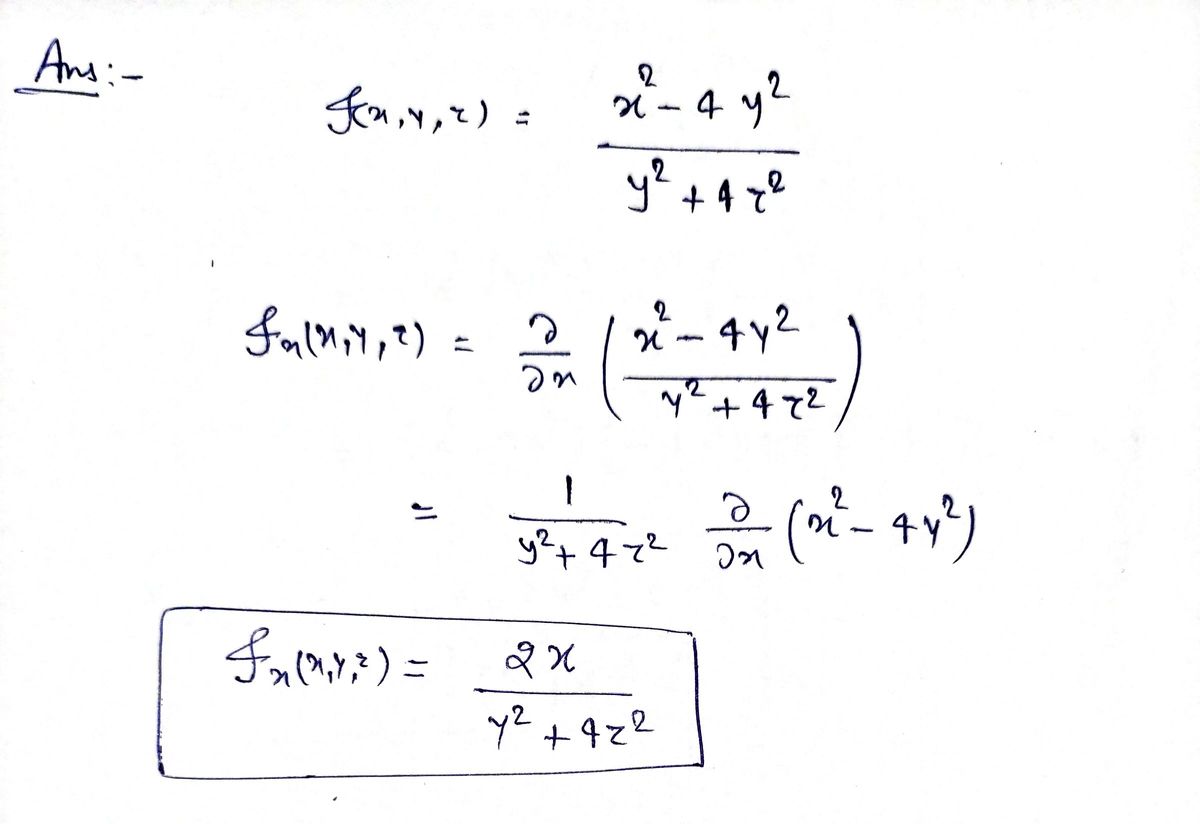 Ans:-
f(x,y,z) = \frac{x^2 - 4y^2}{y^2 + 4z^2}
f_x(x,y,z) = \frac{∂}{∂x} \left( \frac{x^2 - 4y^2}{y^2 + 4z^2} \right)
= \frac{1}{y^2 + 4z^2} \frac{∂}{∂x} (x^2 - 4y^2)
f_x(x,y,z) = \frac{2x}{y^2 + 4z^2}